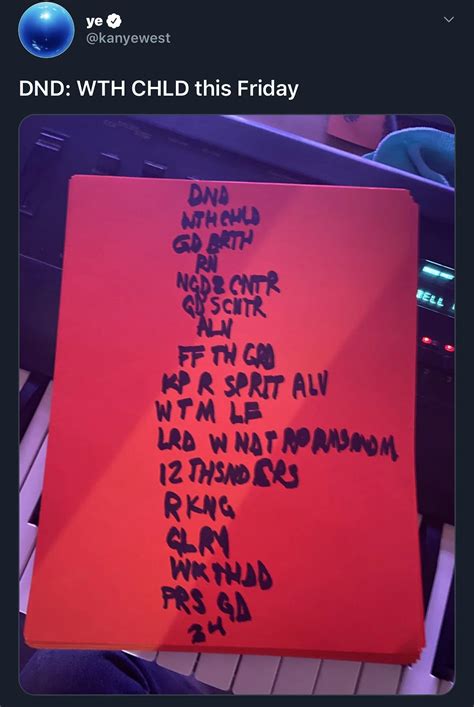 ye
@kanyewest
DND: WTH CHLD this Friday
DND
WTH CHLD
GD BRTH
RN
CNTR
GD SCNTR
ALN
FF TH GRD
KP R SPRIT ALV
WTM LF
LRD W NDT
12 THSND
RKNG
GLRY
PRS GD
24
ELL